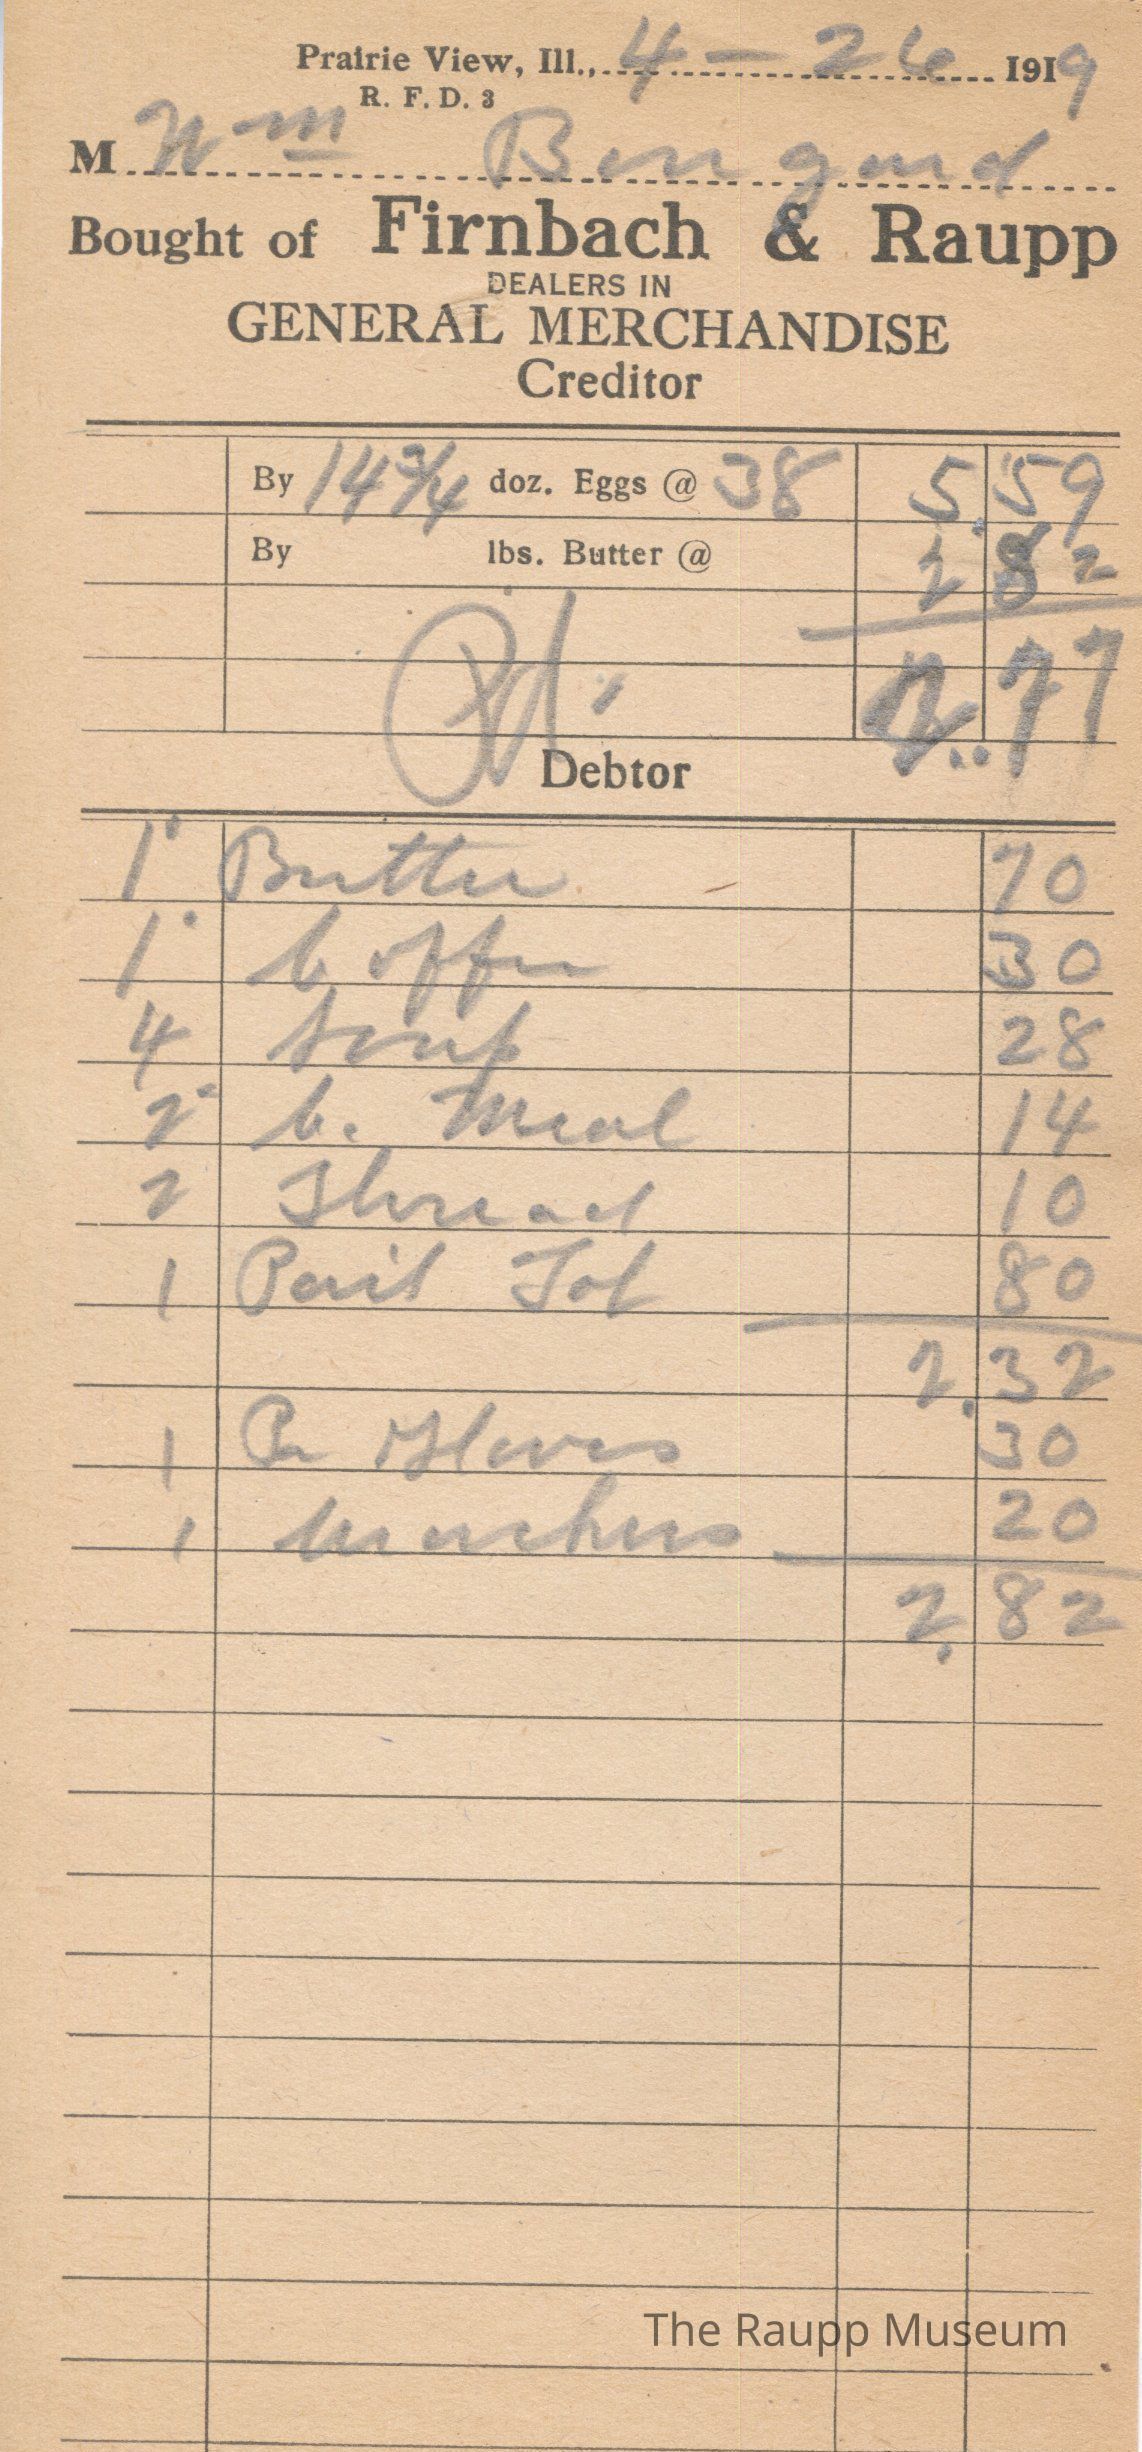 Prairie View, Ill., 4 - 26 1919
R. F. D. 3
M Wm Bengard
Bought of Firnbach & Raupp
DEALERS IN
GENERAL MERCHANDISE
Creditor
By 14 3/4 doz. Eggs @ 38 5.59
By lbs. Butter @ 2 82
Pd. 2.77
Debtor
1 Butter 70
1 Coffee 30
4 Soap 28
2 C. Meal 14
2 Thread 10
1 Pail 80
2.32
1 Pr Gloves 30
1 20
2.82
The Raupp Museum